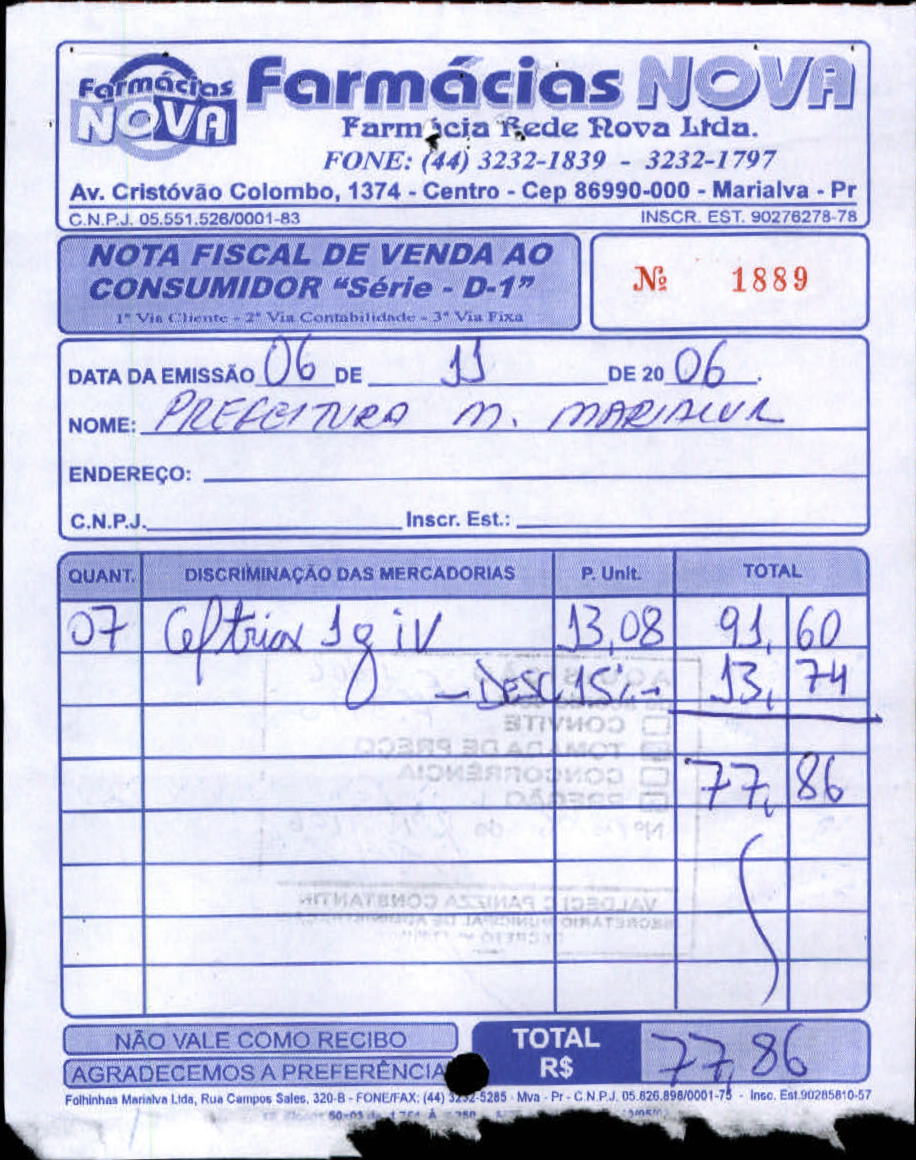 Farmácias NOVA
Farmácias NOVA
Farmácia Rede Nova Ltda.
FONE: (44) 3232-1839 - 3232-1797
Av. Cristóvão Colombo, 1374 - Centro - Cep 86990-000 - Marialva - Pr
C.N.P.J. 05.551.526/0001-83 INSCR. EST. 90276278-78
NOTA FISCAL DE VENDA AO
CONSUMIDOR "Série - D-1"
1ª Via Cliente - 2ª Via Contabilidade - 3ª Via Fixa
Nº 1889
DATA DA EMISSÃO 06 DE 11 DE 20 06.
NOME: PREFEITURA M. MARIALVA
ENDEREÇO:
C.N.P.J. Inscr. Est.:
QUANT. DISCRIMINAÇÃO DAS MERCADORIAS P. Unit. TOTAL
07 Ceftriax 1g iV 13,08 91,60
- DESC 15% - 13,74
CONVITE
TOMADA DE PREÇO
CONCORRÊNCIA
77,86
PREGÃO
VALDECI C PANIZZA CONSTANTIN
SECRETARIO MUNICIPAL DE ADMINISTRAÇÃO
NÃO VALE COMO RECIBO
AGRADECEMOS A PREFERÊNCIA
TOTAL
R$ 77,86
Folhinhas Marialva Ltda, Rua Campos Sales, 320-B - FONE/FAX: (44) 3232-5285 - Mva - Pr - C.N.P.J. 05.826.898/0001-75 - Insc. Est.90285810-57